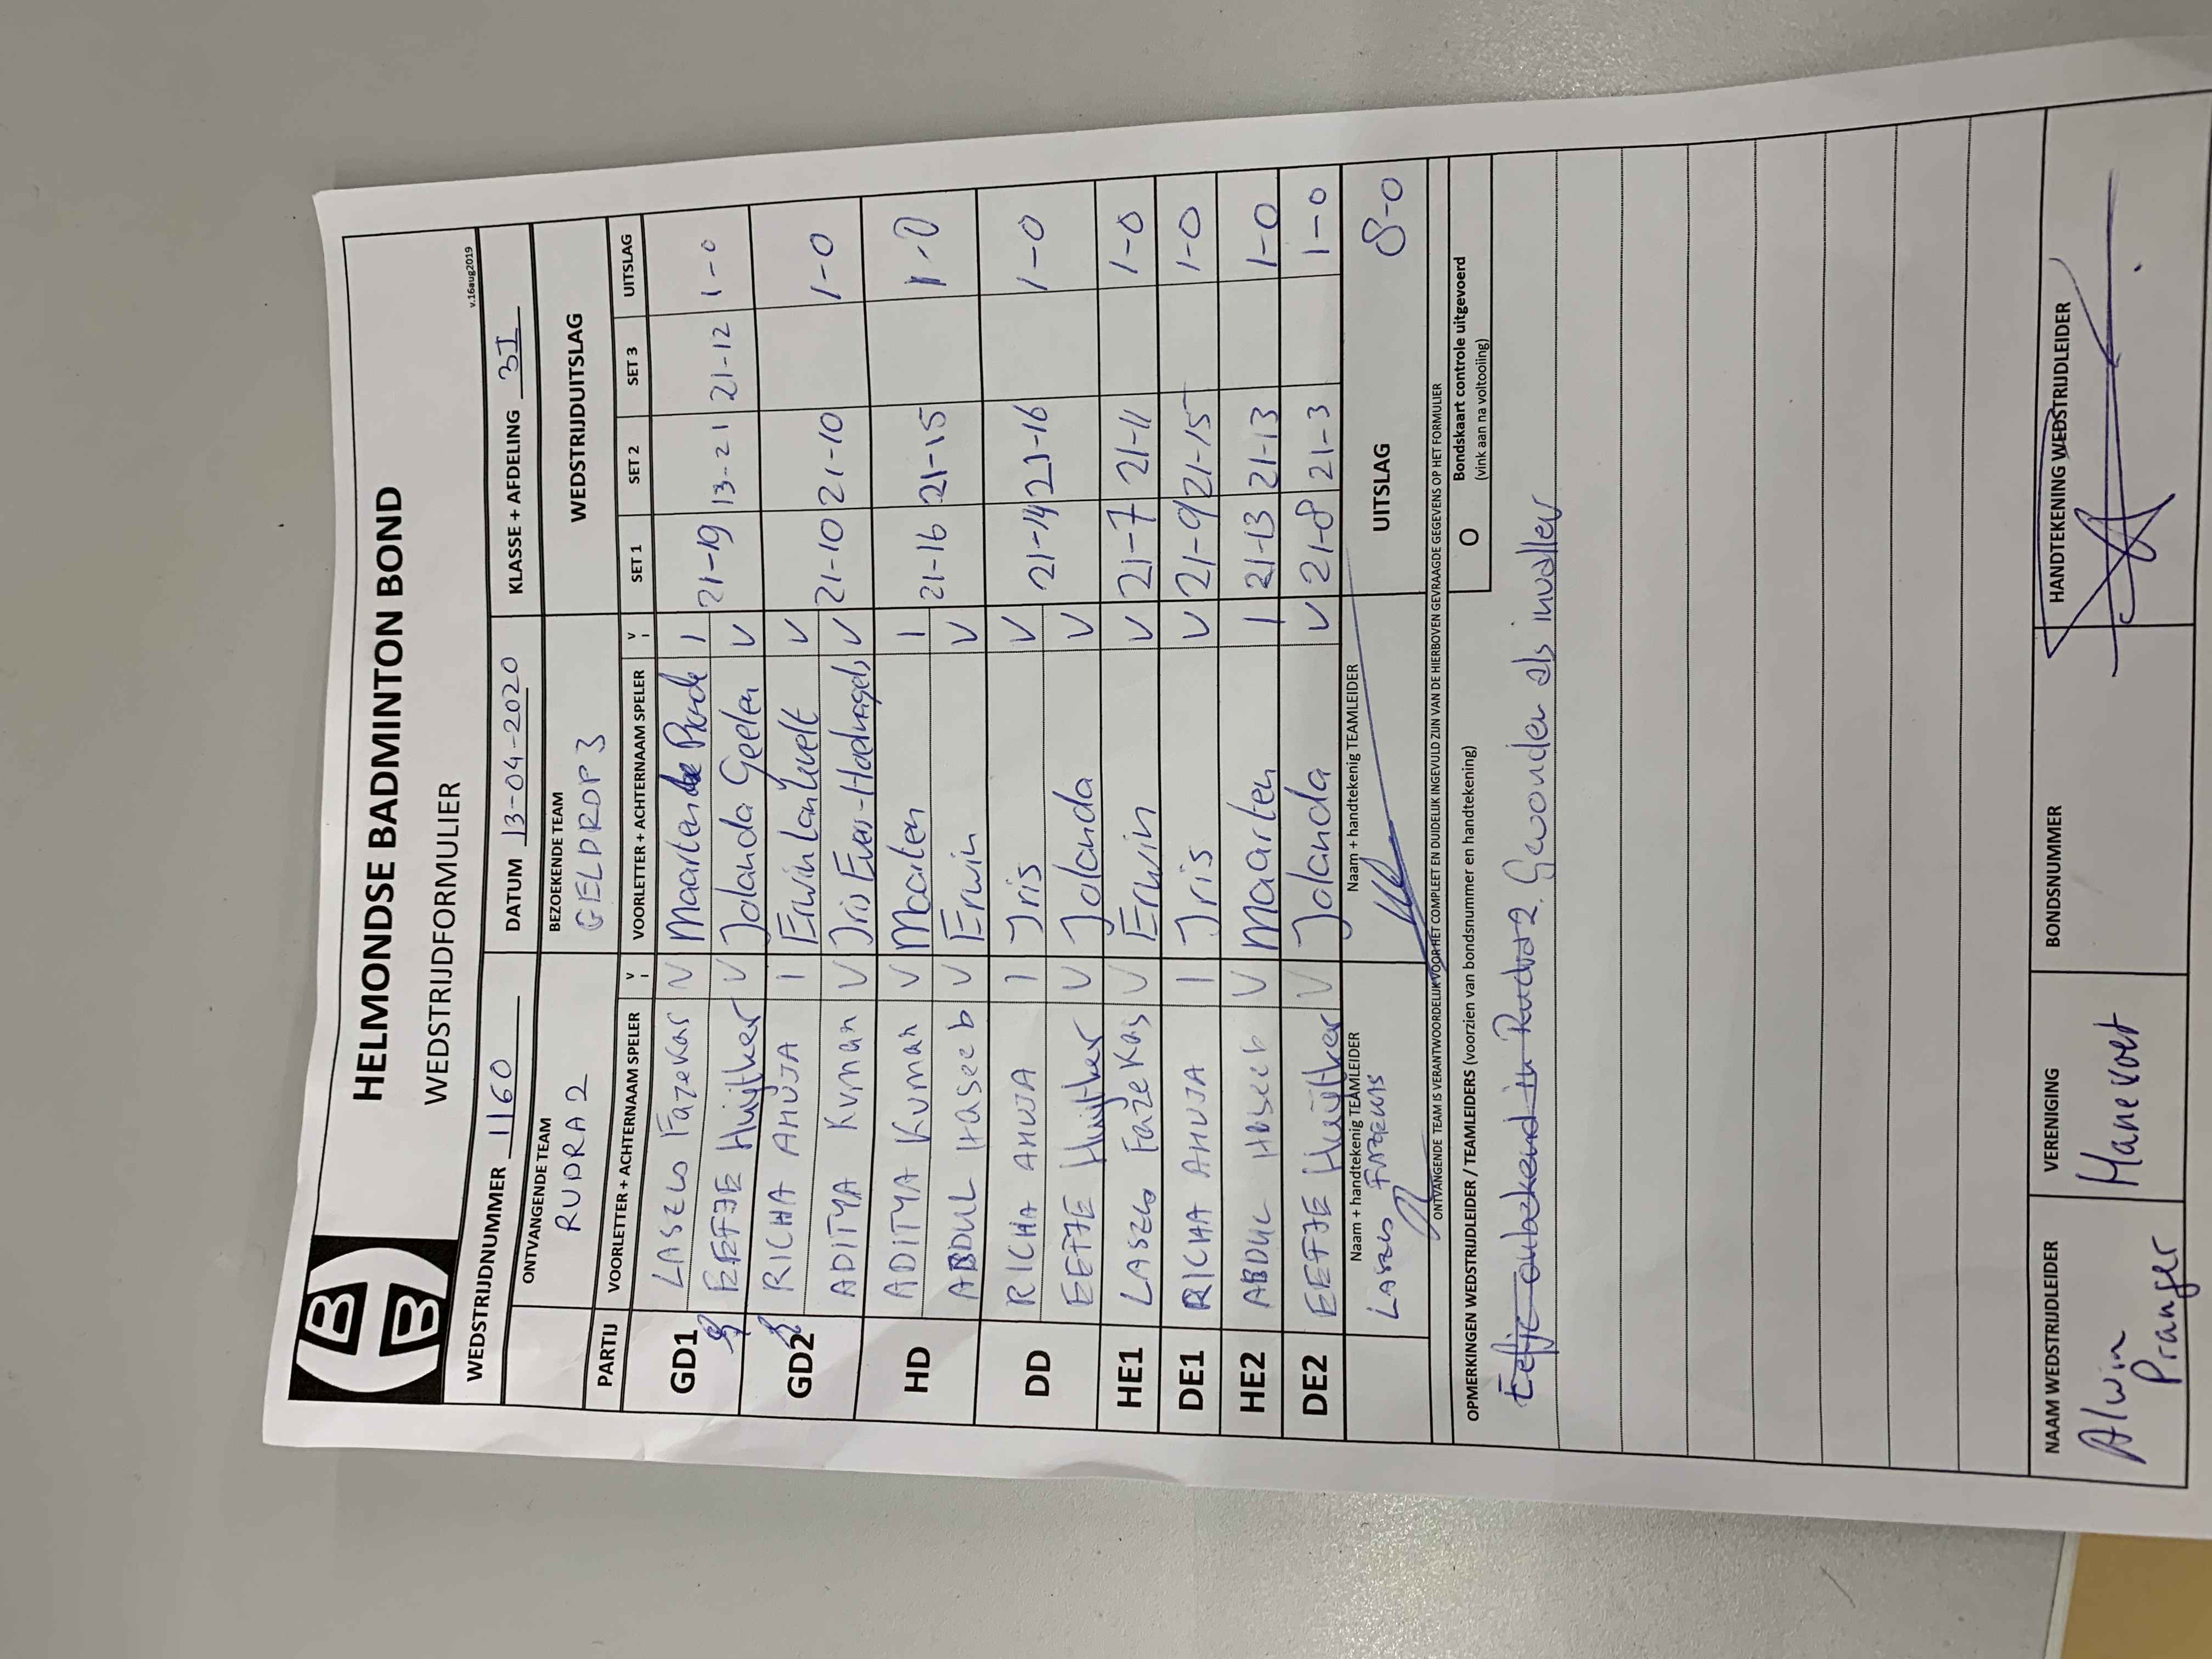 HELMONDSE BADMINTON BOND
WEDSTRIJDFORMULIER
v.16aug2019
WEDSTRIJDNUMMER 1160 DATUM 13-04-2020 KLASSE + AFDELING 3I
ONTVANGENDE TEAM BEZOEKENDE TEAM WEDSTRIJDUITSLAG
RUDRA 2 GELDROP 3
PARTIJ VOORLETTER + ACHTERNAAM SPELER V I VOORLETTER + ACHTERNAAM SPELER V I SET 1 SET 2 SET 3 UITSLAG
GD1 LASZLO FazeKas V Maarten de I 21-19 13-21 21-12 1-0
EEFJE Huijtker V Jolanda Geelen V
GD2 RICHA AHUJA I Erwin V 21-10 21-10 1-0
ADITYA Kumar V Iris V
HD ADITYA Kumar V Maarten I 21-16 21-15 1-0
ABDUL Haseeb V Erwin V
DD RICHA AHUJA I Iris V 21-14 21-16 1-0
EEFJE Huijtker V Jolanda V
HE1 LASZLO FazeKas V Erwin V 21-7 21-11 1-0
DE1 RICHA AHUJA I Iris V 21-9 21-15 1-0
HE2 ABDUL Haseeb V Maarten I 21-13 21-13 1-0
DE2 EEFJE Huijtker V Jolanda V 21-8 21-3 1-0
Naam + handtekenig TEAMLEIDER Naam + handtekenig TEAMLEIDER UITSLAG 8-0
LASZLO FAZEKAS
ONTVANGENDE TEAM IS VERANTWOORDELIJK VOOR HET COMPLEET EN DUIDELIJK INGEVULD ZIJN VAN DE HIERBOVEN GEVRAAGDE GEGEVENS OP HET FORMULIER
OPMERKINGEN WEDSTRIJDLEIDER / TEAMLEIDERS (voorzien van bondsnummer en handtekening) O Bondskaart controle uitgevoerd
(vink aan na voltooiing)
Eefje onbekend in Rudra 2. Gevonden als invaller
NAAM WEDSTRIJDLEIDER VERENIGING BONDSNUMMER HANDTEKENING WEDSTRIJDLEIDER
Alwin Manevoet
Pranger